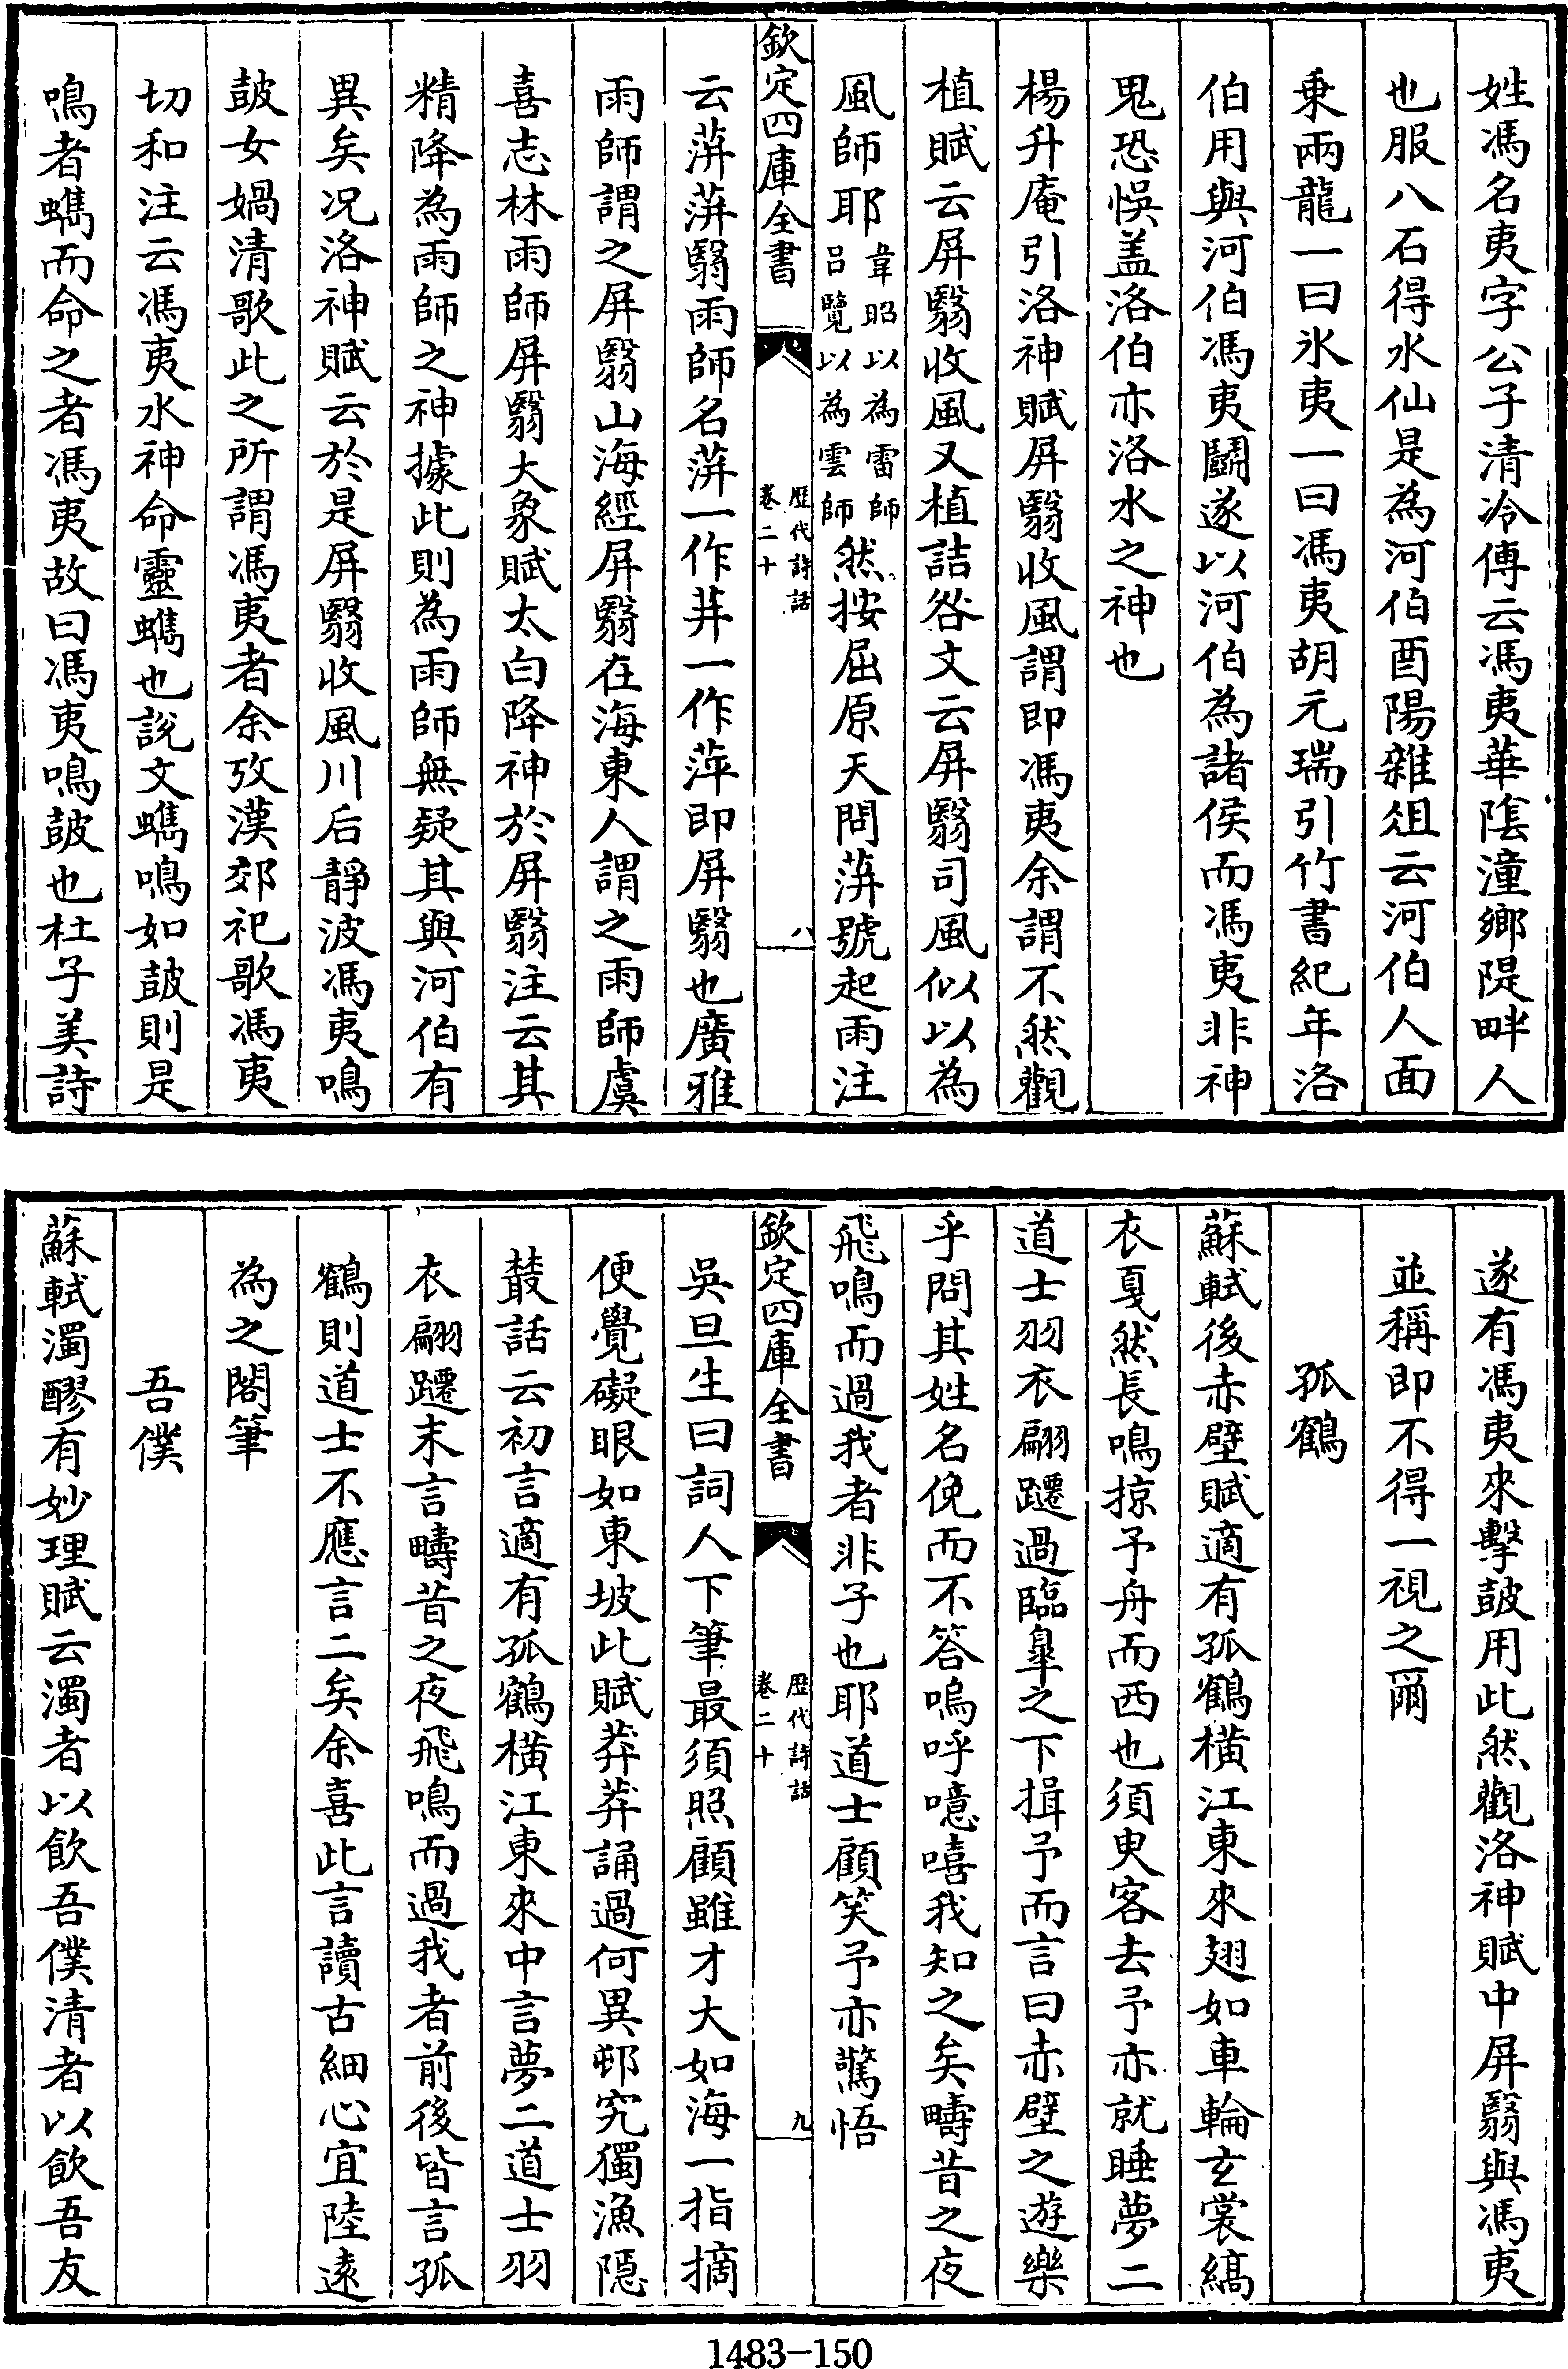 姓馮名夷字公子清冷傳云馮夷華隂潼鄉隄畔人
也服八石得水仙是為河伯酉陽雜俎云河伯人面
乗兩龍一曰氷夷一曰馮夷胡元瑞引竹書紀年洛
伯用與河伯馮夷鬬遂以河伯為諸侯而馮夷非神
鬼恐悞盖洛伯亦洛水之神也
楊升庵引洛神賦屏翳收風謂即馮夷余謂不然觀
植賦云屏翳收風又植詰咎文云屏翳司風似以為
風師耶韋昭以為雷師吕覽以為雲師然按屈原天問蓱號起雨注
欽定四庫全書
歴代詩話
卷二十
八
云蓱蓱翳雨師名蓱一作荓一作萍即屏翳也廣雅
雨師謂之屏翳山海經屏翳在海東人謂之雨師虞
喜志林雨師屏翳大象賦太白降神於屏翳注云其
精降為雨師之神據此則為雨師無疑其與河伯有
異矣况洛神賦云於是屏翳收風川后靜波馮夷鳴
鼓女媧清歌此之所謂馮夷者余攷漢郊祀歌馮夷
切和注云馮夷水神命靈蠵也說文蠵鳴如鼓則是
鳴者蠵而命之者馮夷故曰馮夷鳴鼓也杜子美詩
遂有馮夷來擊鼓用此然觀洛神賦中屏翳與馮夷
並稱即不得一視之爾
孤鶴
蘇軾後赤壁賦適有孤鶴橫江東來翅如車輪玄裳縞
衣戛然長鳴掠予舟而西也須臾客去予亦就睡夢二
道士羽衣翩躚過臨臯之下揖予而言曰赤壁之遊樂
乎問其姓名俛而不答嗚呼噫嘻我知之矣疇昔之夜
飛鳴而過我者非子也耶道士顧笑予亦驚悟
欽定四庫全書
歴代詩話
卷二十
九
吳旦生曰詞人下筆最須照顧雖才大如海一指摘
便覺礙眼如東坡此賦莽莽誦過何異邨究獨漁隱
叢話云初言適有孤鶴橫江東來中言夢二道士羽
衣翩躚末言疇昔之夜飛鳴而過我者前後皆言孤
鶴則道士不應言二矣余喜此言讀古細心宜陸逺
為之閣筆
吾僕
蘇軾濁醪有妙理賦云濁者以飲吾僕清者以飲吾友
1483-150